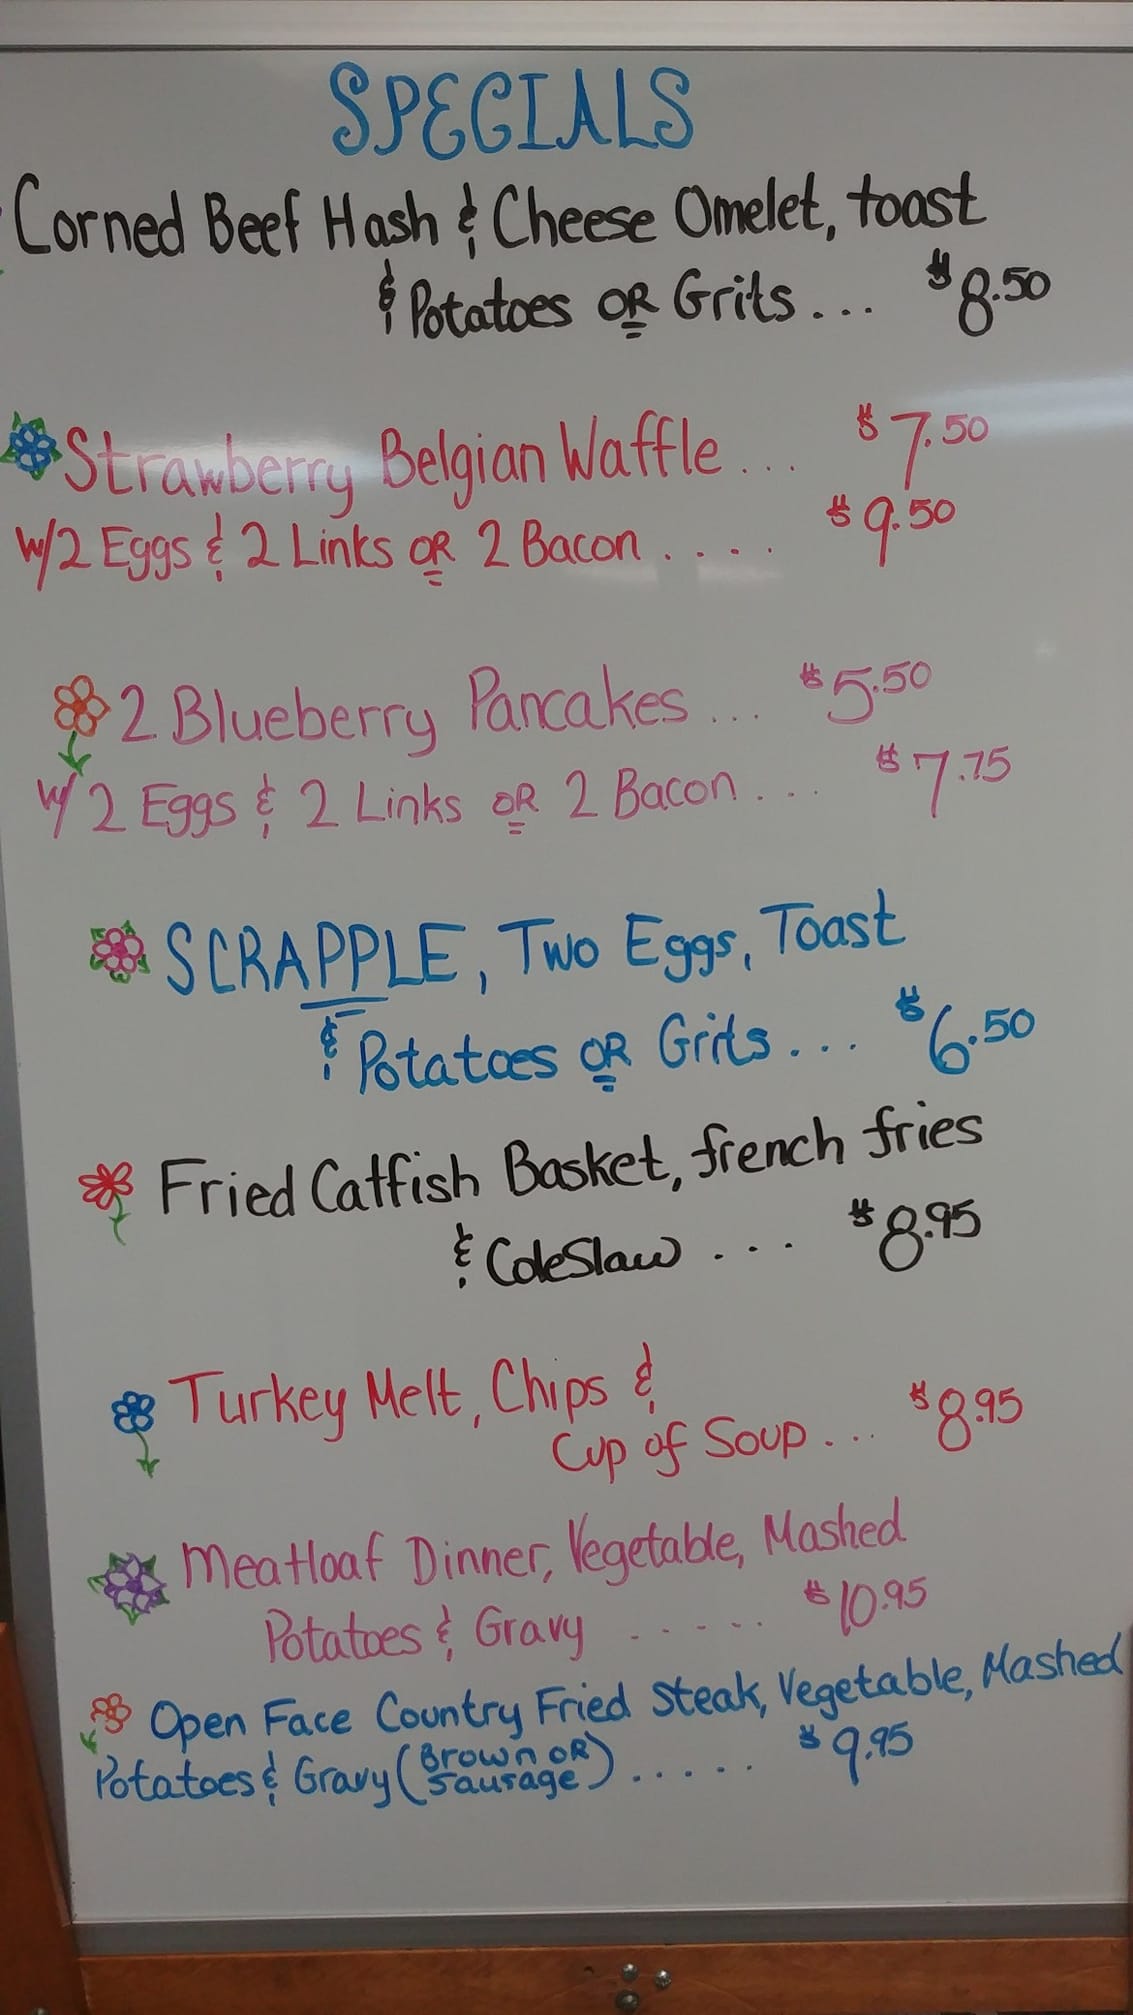 SPECIALS
Corned Beef Hash & Cheese Omelet, toast
& Potatoes OR Grits... $8.50
Strawberry Belgian Waffle... $7.50
w/2 Eggs & 2 Links OR 2 Bacon.... $9.50
2 Blueberry Pancakes... $5.50
w/ 2 Eggs & 2 Links OR 2 Bacon... $7.75
SCRAPPLE, Two Eggs, Toast
& Potatoes OR Grits... $6.50
Fried Catfish Basket, french fries
& ColeSlaw ... $8.95
Turkey Melt, Chips &
Cup of Soup... $8.95
Meatloaf Dinner, Vegetable, Mashed
Potatoes & Gravy ..... $10.95
Open Face Country Fried Steak, Vegetable, Mashed
Potatoes & Gravy (Brown OR Sausage)..... $9.95